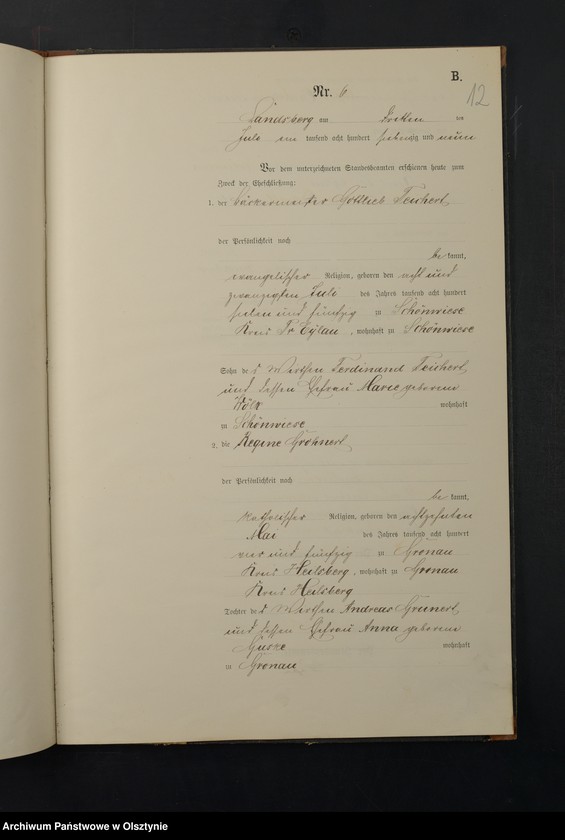 B.
12
Nr. 6
Landsberg am Dritten ten
Juli ein tausend acht hundert siebenzig und neun
Vor dem unterzeichneten Standesbeamten erschienen heute zum
Zweck der Eheschließung:
1. der Bäckermeister Gottlieb Teichert
der Persönlichkeit nach
be kannt,
evangelischer Religion, geboren den acht und
zwanzigsten Juli des Jahres tausend acht hundert
sieben und fünfzig zu Schönwiese
Kreis Pr. Eylau, wohnhaft zu Schönwiese
Sohn des Wirthen Ferdinand Teichert
und dessen Ehefrau Marie geborene
wohnhaft
zu Schönwiese
2. die Regine Grohnert
der Persönlichkeit nach
be kannt,
katholischer Religion, geboren den achtzehnten
Mai des Jahres tausend acht hundert
vier und fünfzig zu Gronau
Kreis Heilsberg, wohnhaft zu Gronau
Kreis Heilsberg
Tochter des Wirthen Andreas Grunert
und dessen Ehefrau Anna geborene
wohnhaft
zu Gronau
Archiwum Państwowe w Olsztynie